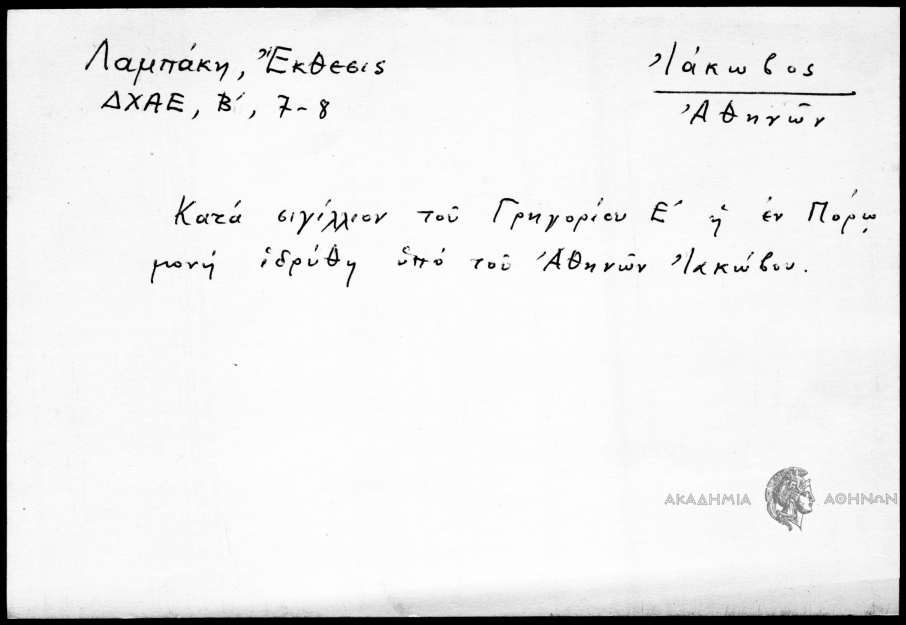 Λαμπάκη, Ἔκθεσις
ΔΧΑΕ, Β΄, 7-8
Ἰάκωβος
Ἀθηνῶν
Κατά σιγίλλιον τοῦ Γρηγορίου Ε΄ ἡ ἐν Πόρῳ
μονή ἱδρύθη ὑπό τοῦ Ἀθηνῶν Ἰακώβου.
ΑΚΑΔΗΜΙΑ ΑΘΗΝΩΝ